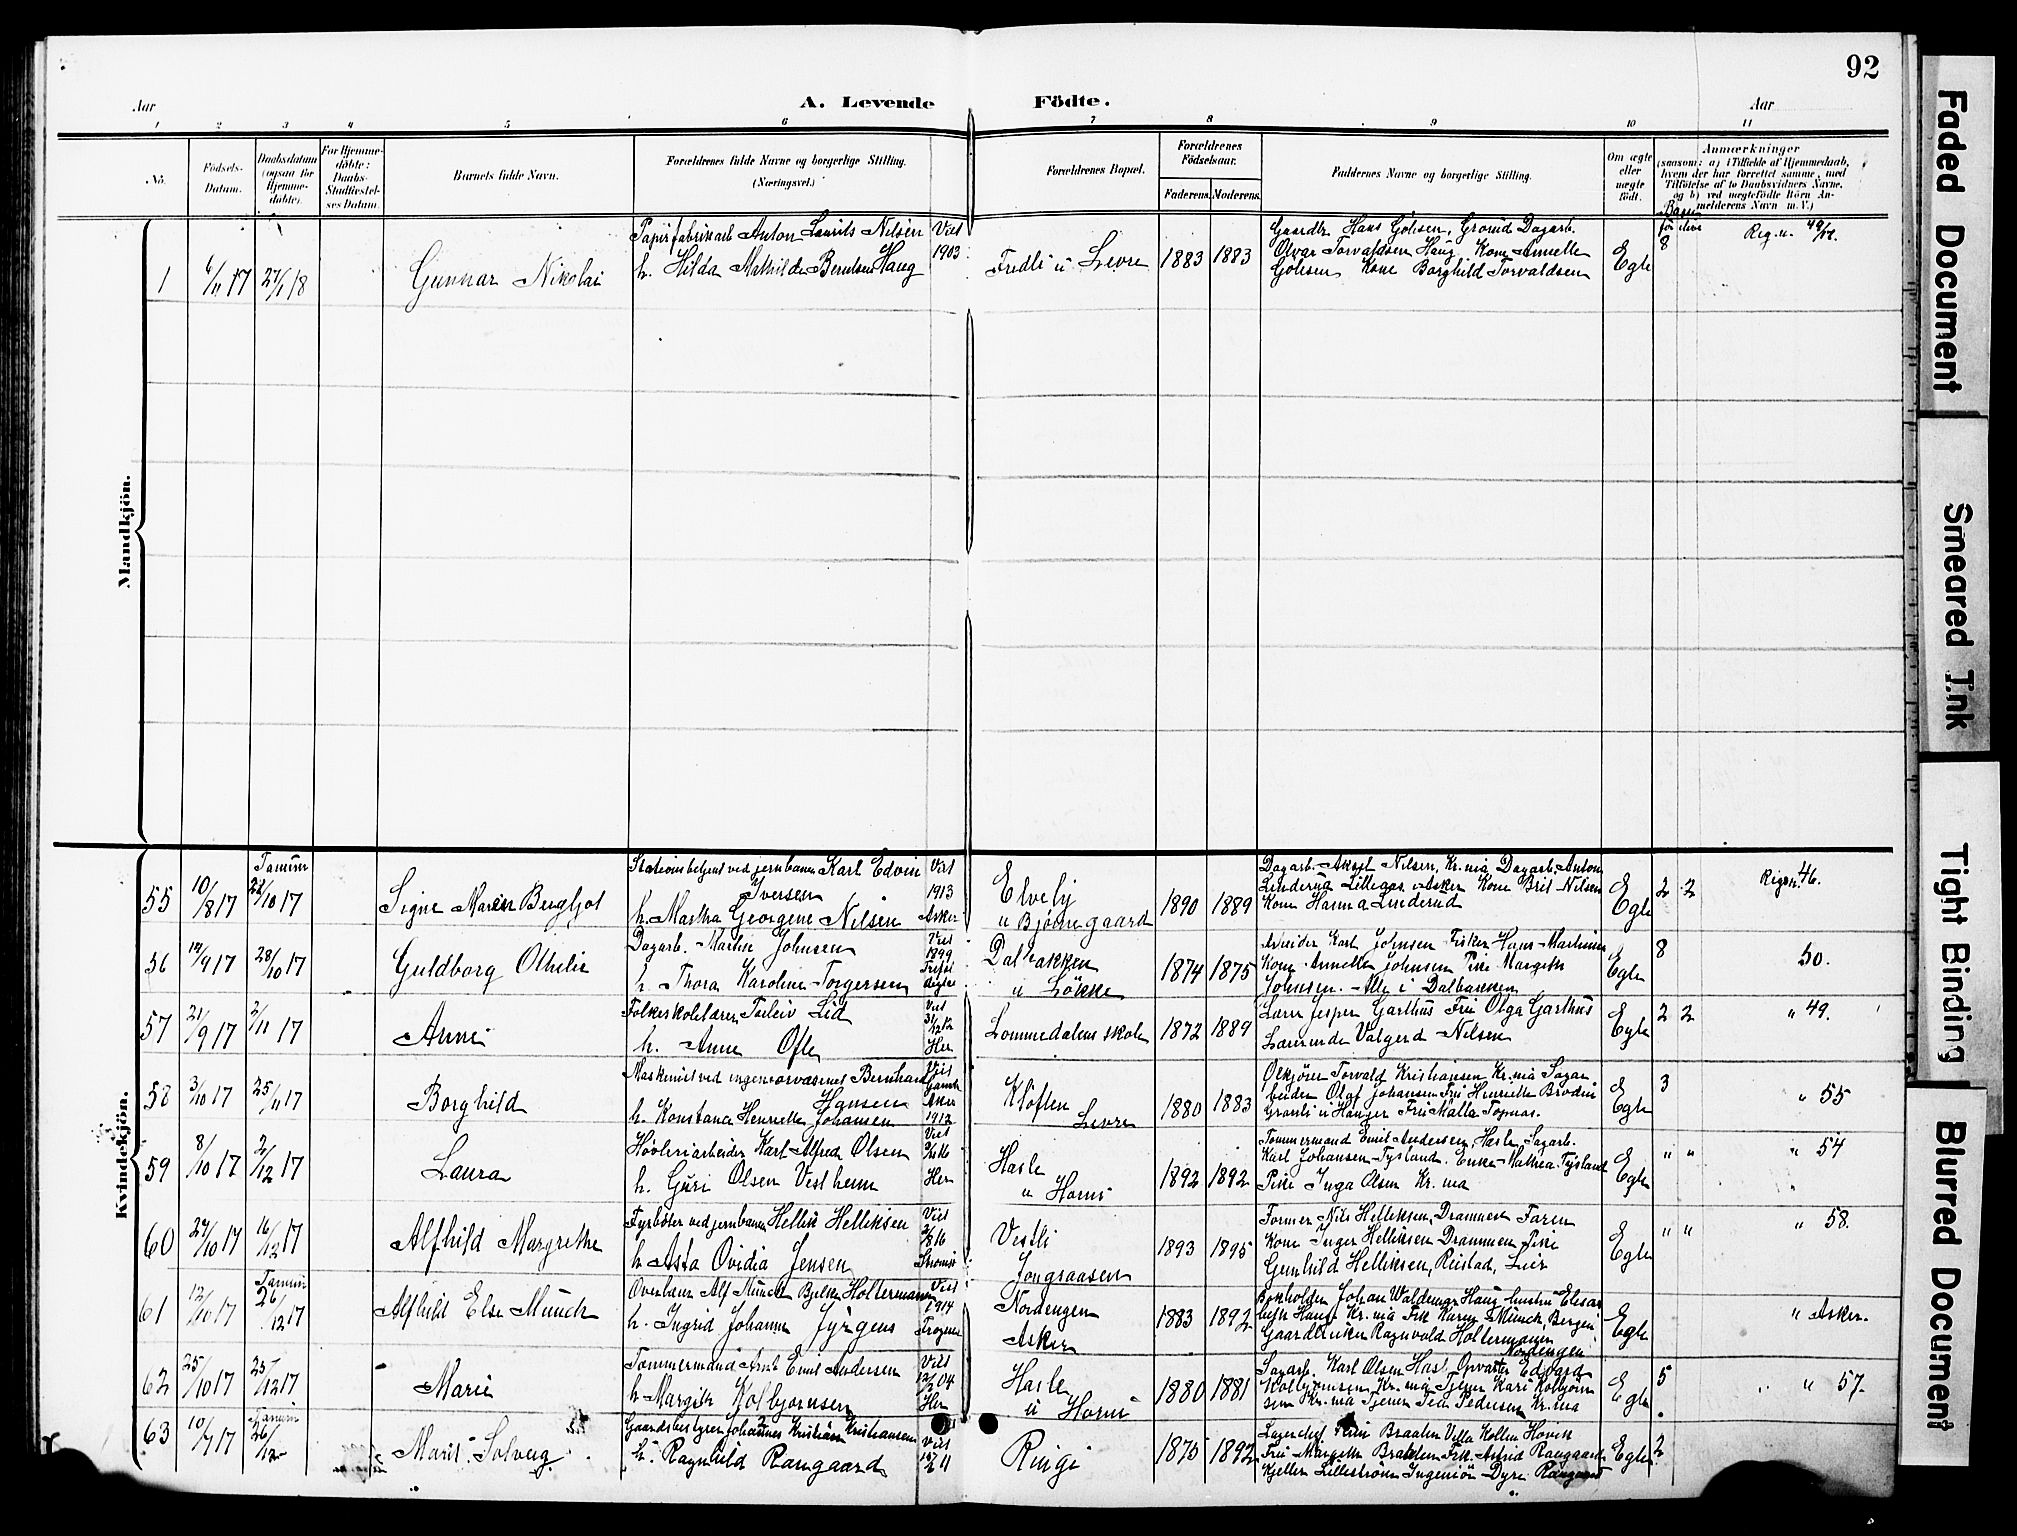 92
Aar
A. Levende
Födte.
Aar
1 2 3 4 5 6 7 8 9 10 11
No.
Födsels-
Datum.
Daabsdatum
(ogsaa for
Hjemme-
döbte).
For Hjemme-
döbte:
Daabs-
Stadfæstel-
ses Datum.
Barnets fulde Navn.
Forældrenes fulde Navne og borgerlige Stilling.
(Næringsvei.)
Forældrenes Bopæl.
Forældrenes
Födselsaar.
Faderens. Moderens.
Faddernes Navne og borgerlige Stilling.
Om ægte
eller
uægte
født.
Anmærkninger
(saasom: a) i Tilfælde af Hjemmedaab,
hvem der har forrettet samme, med
Tilföielse af to Daabsvidners Navne,
og b) ved uægtefödte Börn An-
melderens Navn m. V.)
Mandkjön.
1
6/11 17
27/1 18
Gunnar Nikolai
Papirfabrikarb Anton Laurits Nilsen
h. Hilda Mathilde Berntsen Haug
Viet
1903
Fredli u Levre
1883
1883
Gaardbr. Hans Golisen, Dagarb.
Olvar Torvaldsen Haug, Kone Annette
Golisen Kone Borghild Torvaldsen
Egte
8
Reg. n. 49/17.
Kvindekjön.
55
10/8 17
Tanum
22/10 17
Signe Maren Bergljot
Stationsbetjent ved jernbanen Karl Edvin
Iversen
h. Martha Georgene Nilsen
Viet
1913
Asker
Elveby
u Bjørnegaard
1890
1889
Dagarb. Aksel Nilsen, Kr.nia Dagarb. Anton
Linderud Asker Kone Brit Nilsen
Kone Hanna Linderud
Egte
2 2
46.
56
14/9 17
28/10 17
Guldborg Othilie
Dagarb. Martin Johnsen
h. Thora Karoline Torgersen
Viet
1899
Dalbakken
u Løkke
1874
1875
Arbeider Karl Johnsen Fisker Hans Martinsen
Kone Annette Johnsen Pike Margith
Johnsen. Alle i Dalbakken
Egte
8
50.
57
21/9 17
2/11 17
Anne
Folkeskolelærer Torleiv Lid
h. Anne Ofte
Viet
Her
Lommedalens skole
1872
1889
Lærer Jesper Garthus Fru Olga Garthus
Lærerinde Valgerd Nilsen
Egte
2 2
" 49.
58
3/10 17
25/11 17
Borghild
Maskinist ved ingeniørvæsenet Bernhard
Hansen
h. Konstance Henriette Johansen
Viet
Gamle
Aker
1912
Kløften
Levre
1880
1883
Olkjører Torvald Kristiansen Kr.nia Sagar
beider Olaf Johansen Fru Henriette Brodin
Granli u Hauger Fru Malla
Egte
3
" 55
59
8/10 17
2/12 17
Laura
Høvleriarbeider Karl Alfred Olsen
h. Guri Olsen Vestheim
Viet
Her
Hasle
u Horni
1892
1892
Tømmermand Emil Andersen, Hasle, Sagarb.
Karl Johansen Tysland. Enke Mathea Tysland
Pike Inga Olsen Kr.nia
Egte
" "
" 54
60
24/10 17
16/12 17
Alfhild Margrethe
Fyrbøter ved jernbanen Hellik Helliksen
h. Asta Ovidia Jensen
Viet
Vestli
Jongsaasen
1893
1895
Former Nils Helliksen, Drammen
Kone Inger Helliksen Drammen Pike
Gunhild Helliksen, Reistad, Lier
Egte
" "
" 58.
61
12/10 17
Tanum
26/12 17
Alfhild Else Münch
Overlærer Alf Münch Bjelke Holtermann
h. Ingrid Johanne Jyrgens
Viet
1914
Frogner
Nordengen
Asker
1883
1892
Bokholder Johan Waldemar Haug hustru Elisa
beth Haug Kr.nia Frk Karen Münch Bergen
Gaardbruker Ragnvald Holtermann
Nordengen
Egte
" Asker.
62
25/10 17
25/12 17
Marie
Tømmermand Emil Andersen
h. Margith Kolbjørnsen
Viet
12/2 04
Her
Hasle
u Horni
1880
1881
Sagarb. Karl Olsen Hasle, Opvarter Edvard
Kolbjørnsen, Kr.nia Tjener Kari Kolbjørn
sen Kr.nia Tjener Pedersen Kr.nia
Egte
5
" 57.
63
10/7 17
Tanum
26/12
Marit Solveig
Gaardsbestyrer Johannes Kristian Kristiansen
h. Ragnhild Rangaard
Viet
Ringi
1875
1892
Lagerchef Braaten Villa Kollen Høvik
Fru Margith Braaten Frk. Astrid Rangaard
Kjeller Lillestrøm Ingeniør Dyre Rangaard
Egte
2
Faded Document
Smeared Ink
Tight Binding
Blurred Document